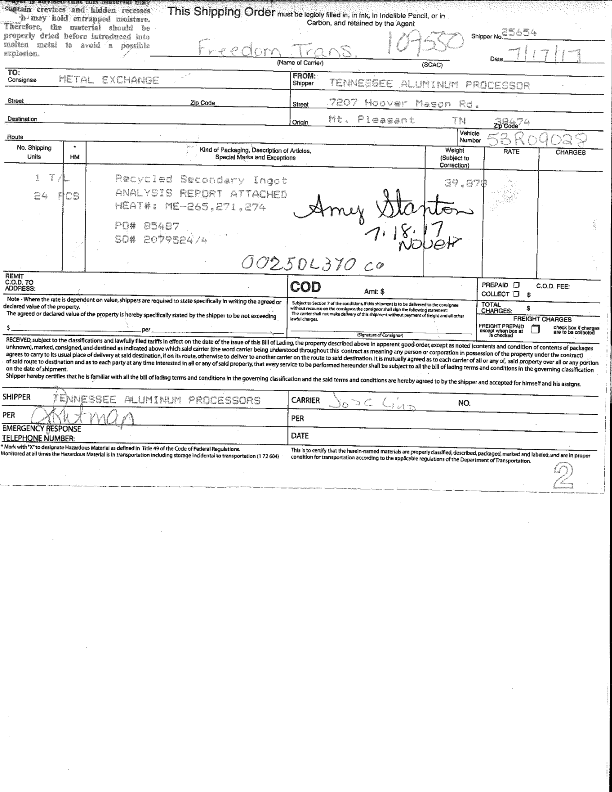 sustain crevices and hidden recesses
may hold entrapped moisture.
Therefore, the material should be
properly dried before introduced into
molten metal to avoid a possible
explosion.
This Shipping Order must be legibly filled in, in Ink, in Indelible Pencil, or in
Carbon, and retained by the Agent
Shipper No. 25654
Freedom Trans. 109550
(Name of Carrier) (SCAC)
Date 7/17/17
TO:
Consignee METAL EXCHANGE
FROM:
Shipper TENNESSEE ALUMINUM PROCESSOR
Street Zip Code
Street 7207 Hoover Mason Rd.
Destination
Origin Mt. Pleasant TN 38474
Zip Code
Route
Vehicle
Number 53R09028
No. Shipping
Units
*
HM
Kind of Packaging, Description of Articles,
Special Marks and Exceptions
Weight
(Subject to
Correction)
RATE
CHARGES
1 T/L Recycled Secondary Ingot 39,878
24 PCS ANALYSIS REPORT ATTACHED
HEAT#: ME-265,271,274
PO# 85487
SO# 2079524/4
Amy Stanton
7.18.17
0025DL370 co
REMIT
C.O.D. TO
ADDRESS:
COD Amt: $
PREPAID
COLLECT
C.O.D. FEE:
$
Note - Where the rate is dependent on value, shippers are required to state specifically in writing the agreed or
declared value of the property.
The agreed or declared value of the property is hereby specifically stated by the shipper to be not exceeding
$ per
Subject to Section 7 of the conditions, if this shipment is to be delivered to the consignee
without recourse on the consignor, the consignor shall sign the following statement:
The carrier shall not make delivery of this shipment without payment of freight and all other
lawful charges.
(Signature of Consignor)
TOTAL
CHARGES: $
FREIGHT CHARGES
FREIGHT PREPAID
except when box at
is checked
check box if charges
are to be collected
RECEIVED, subject to the classifications and lawfully filed tariffs in effect on the date of the issue of this Bill of Lading, the property described above in apparent good order, except as noted (contents and condition of contents of packages
unknown), marked, consigned, and destined as indicated above which said carrier (the word carrier being understood throughout this contract as meaning any person or corporation in possession of the property under the contract)
agrees to carry to its usual place of delivery at said destination, if on its route, otherwise to deliver to another carrier on the route to said destination. It is mutually agreed as to each carrier of all or any of, said property over all or any portion
of said route to destination and as to each party at any time interested in all or any of said property, that every service to be performed hereunder shall be subject to all the bill of lading terms and conditions in the governing classification
on the date of shipment.
Shipper hereby certifies that he is familiar with all the bill of lading terms and conditions in the governing classification and the said terms and conditions are hereby agreed to by the shipper and accepted for himself and his assigns.
SHIPPER TENNESSEE ALUMINUM PROCESSORS
CARRIER NO.
PER
PER
EMERGENCY RESPONSE
TELEPHONE NUMBER:
DATE
* Mark with "X" to designate Hazardous Material as defined in Title 49 of the Code of Federal Regulations.
Monitored at all times the Hazardous Material is in transportation including storage incidental to transportation (172.604)
This is to certify that the herein-named materials are properly classified, described, packaged, marked and labeled, and are in proper
condition for transportation according to the applicable regulations of the Department of Transportation.
2